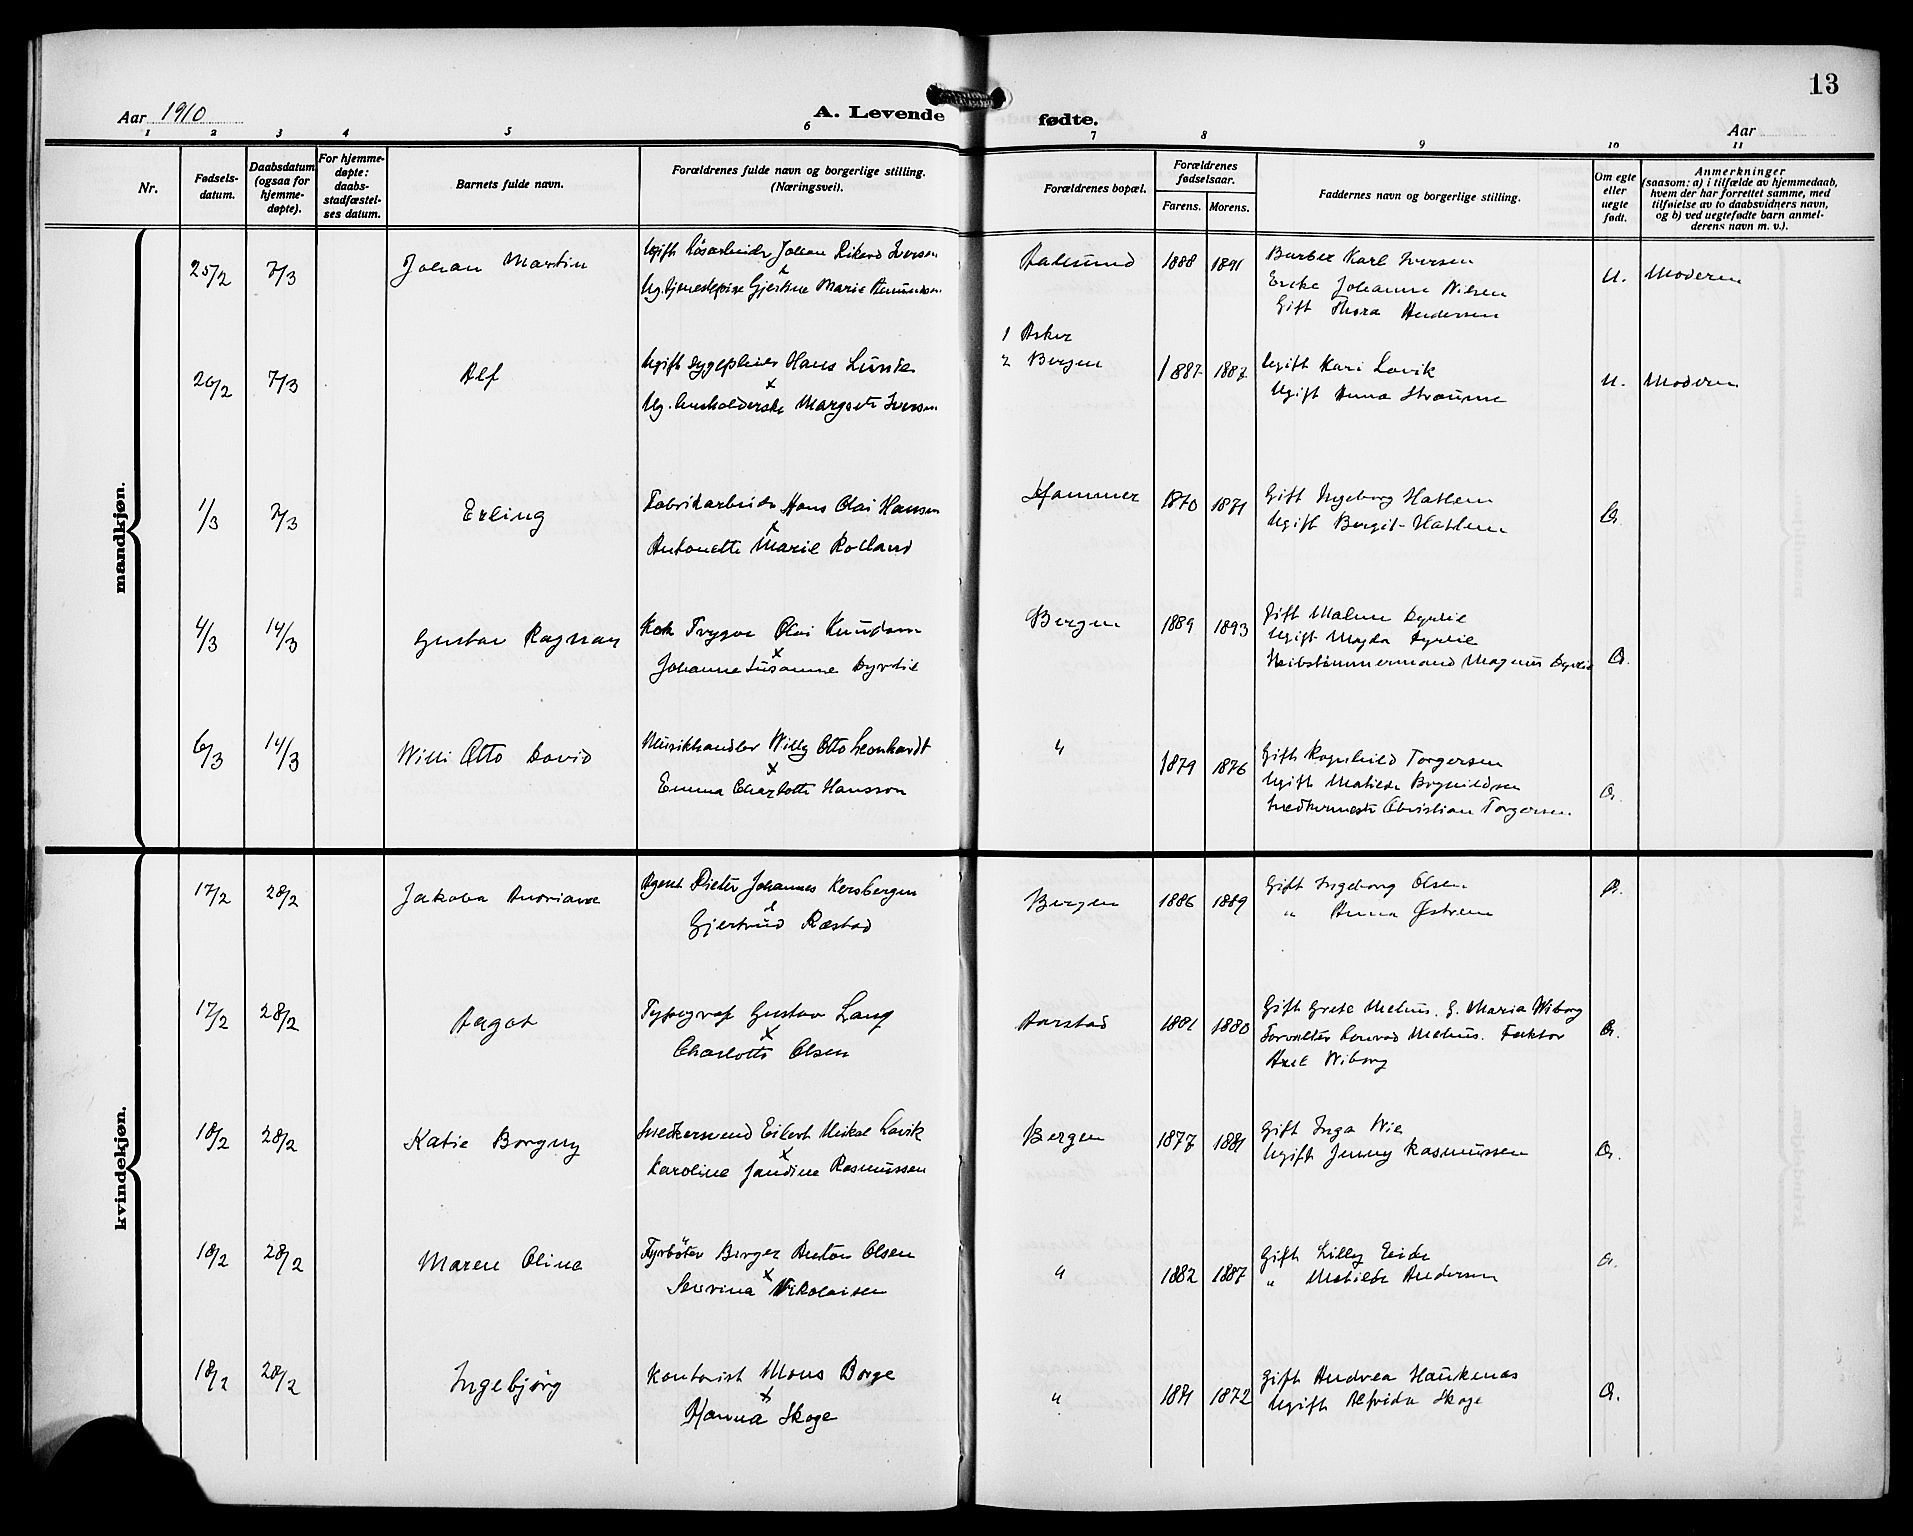 13
Aar 1910
A. Levende
fødte.
Aar
1 2 3 4 5 6 7 8 9 10 11
Nr.
Fødsels-
datum.
Daabsdatum
(ogsaa for
hjemme-
døpte).
For hjemme-
døpte:
daabs-
stadfæstel-
ses datum.
Barnets fulde navn.
Forældrenes fulde navn og borgerlige stilling.
(Næringsvei).
Forældrenes bopæl.
Forældrenes
fødselsaar.
Farens. Morens.
Faddernes navn og borgerlige stilling.
Om egte
eller
uegte
født.
Anmerkninger
(saasom: a) i tilfælde av hjemmedaab,
hvem der har forrettet samme, med
tilføielse av to daabsvidners navn,
og b) ved uegtefødte barn anmel-
derens navn m. v.).
mandkjøn.
25/2 7/3 Johan Martin
Ugift Løsarbeider Johan Rikard Iversen
Ug. tjenestepige Gjertine Marie Amundsen
Aalesund 1888 1891
Barber Karl Iversen
Enke Johanne Nilsen
Gift Thora Andersen
U. Moderen
26/2 7/3 Alf
Ugift sygepleier Hans
Ug. husholderske Margrete Iversen
1 Asker
2 Bergen
1887 1887
Ugift Kari Lavik
Ugift Anna Straume
U. Moderen
1/3 7/3 Erling
Fabrikarbeider Hans Olai Hansen
x
Antonette Marie Rolland
Hammer 1870 1871
Gift Ingeborg Hatlem
Ugift Bergit Hatlem
Æ.
4/3 14/3 Gustav Ragnar
Kok Trygve Olai Knudsen
x
Johanne Susanne Dyrlie
Bergen 1889 1893
Gift Malene Dyrlie
Ugift Magda Dyrlie
Skibstømmermand Magnus Dyrlie
Æ.
6/3 14/3 Willi Otto David
Musikhandler Willy Otto Leonhardt
x
Emma Charlotte Hansson
" 1879 1876
Gift Ragnhild Torgersen
Ugift Matilde
Snedkermester Christian Torgersen
Æ.
kvindekjøn.
17/2 28/2 Jakoba Andriane
Agent Pieter Johannes Kersbergen
Gjertrud Ræstad
Bergen 1886 1889
Gift Ingeborg Olsen
" Anna Østrem
Æ.
17/2 28/2 Aagot
Typograf Gustav Lang
x
Charlotte Olsen
Aarstad 1881 1880
Gift Grete Mehus. G. Maria Wiborg
Forvalter Konrad Mehus. Faktor
Axel Wiborg
Æ.
18/2 28/2 Katie Borgny
Snedkersvend Eilert Mikal Lavik
x
Karoline Jandine Rasmussen
Bergen 1877 1881
Gift Inga Wie
Ugift Jenny Rasmussen
Æ.
18/2 28/2 Maren Olina
Fyrbøter Birger Anton Olsen
x
Severina Nikolaisen
" 1882 1887
Gift Lilly Eide
" Matilde Andersen
Æ.
18/2 28/2 Ingebjørg
Kontorist Mons Borge
x
Hanna Skoge
" 1871 1872
Gift Andrea Haukenas
Ugift Alfrida Skoge
Æ.